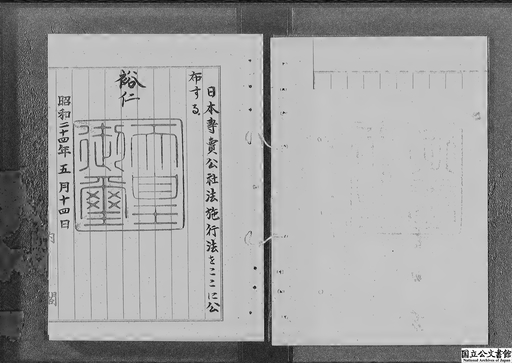 日本専賣公社法施行法をここに公
布する。
裕仁
天皇
御璽
昭和二十四年五月十四日
内閣
国立公文書館
National Archives of Japan